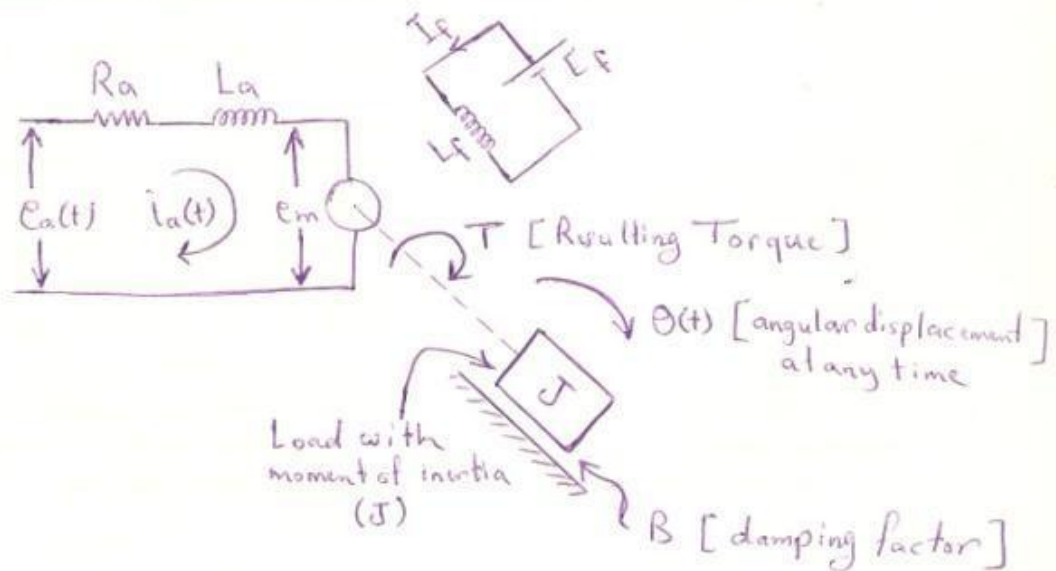 If
Ef
Lf
Ra La
ea(t) ia(t) em
T [Resulting Torque]
θ(t) [angular displacement]
at any time
J
Load with
moment of inertia
(J)
B [damping factor]